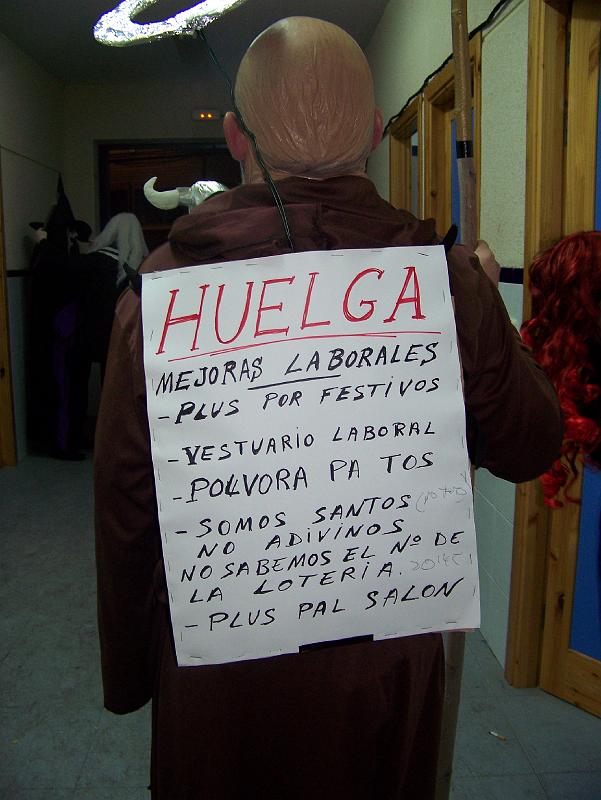 HUELGA
MEJORAS LABORALES
- PLUS POR FESTIVOS
- VESTUARIO LABORAL
- POLVORA PA TOS
- SOMOS SANTOS
NO ADIVINOS
NO SABEMOS EL Nº DE
LA LOTERIA.
- PLUS PAL SALON